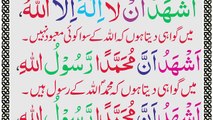 اَشْهَدُ اَنْ لَّا اِلٰهَ اِلَّا اللهُ،
میں گواہی دیتا ہوں کہ اللہ کے سوا کوئی معبود نہیں۔
اَشْهَدُ اَنَّ مُحَمَّدًا رَّسُوْلُ اللهِ،
میں گواہی دیتا ہوں کہ محمدؐ اللہ کے رسول ہیں۔
اَشْهَدُ اَنَّ مُحَمَّدًا رَّسُوْلُ اللهِ،